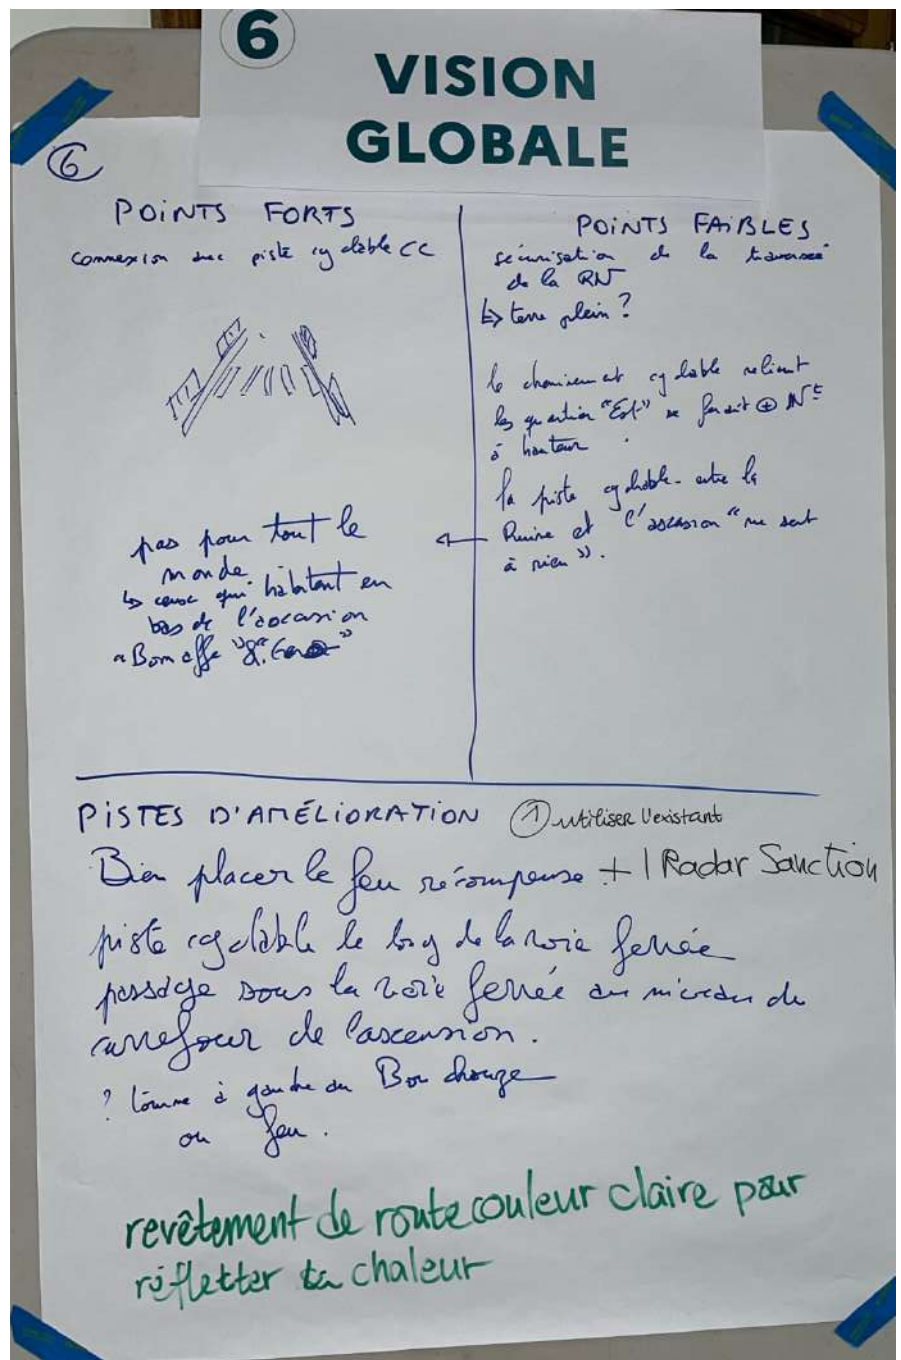 6
VISION
GLOBALE
6
POINTS FORTS
connexion avec piste cyclable CC
pas pour tout le
monde.
↳ ceux qui habitent en
bas de l'ascension
POINTS FAIBLES
sécurisation de la traversée
de la RN
↳ terre plein ?
le cheminement cyclable reliant
les quartier "Est" se ferait ⊕ Nt
à hauteur
la piste cyclable entre la
et l'ascension "ne sert
à rien".
PISTES D'AMÉLIORATION ① utiliser l'existant
Bien placer le feu récompense + 1 Radar Sanction
piste cyclable le long de la voie ferrée
passage sous la voie ferrée au niveau du
carrefour de l'ascension.
? tourne à gauche au
ou feu.
revêtement de route couleur claire pour
réfletter la chaleur